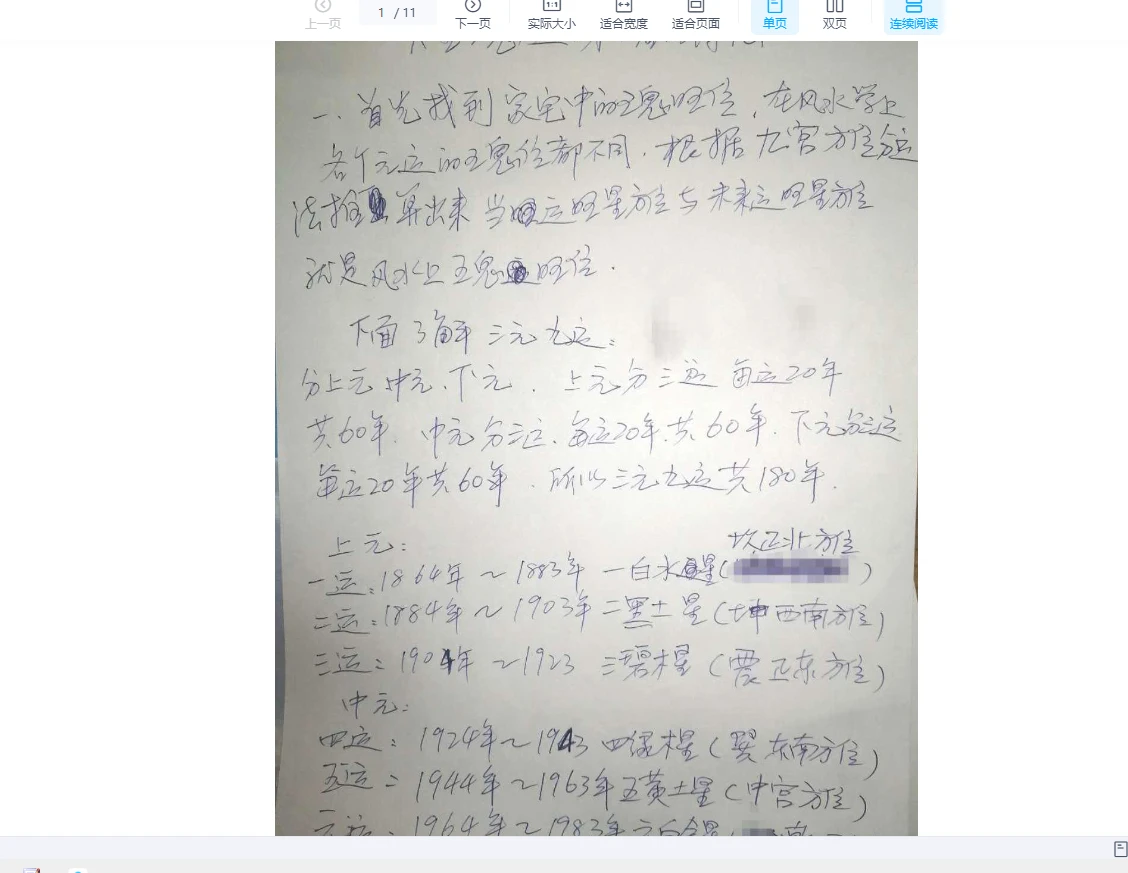 上一页 1 / 11 下一页 实际大小 适合宽度 适合页面 单页 双页 连续阅读
一、首先找到家宅中的五鬼旺位,在风水学上
各个元运的五鬼位都不同.根据九宫方位分运
法推算出来当运旺星方位与未来运旺星方位
就是风水上五鬼旺位.
下面了解三元九运:
分上元.中元.下元. 上元分三运 每运20年
共60年. 中元分三运.每运20年.共60年.下元分三运
每运20年共60年.所以三元九运共180年.
上元:
坎正北方位
一运:1864年~1883年 一白水星( )
二运:1884年~1903年 二黑土星(坤西南方位)
三运:1904年~1923 三碧木星(震正东方位)
中元:
四运:1924年~1943 四绿木星(巽东南方位)
五运:1944年~1963年五黄土星(中宫方位)
六运:1964年~1983年六白金星